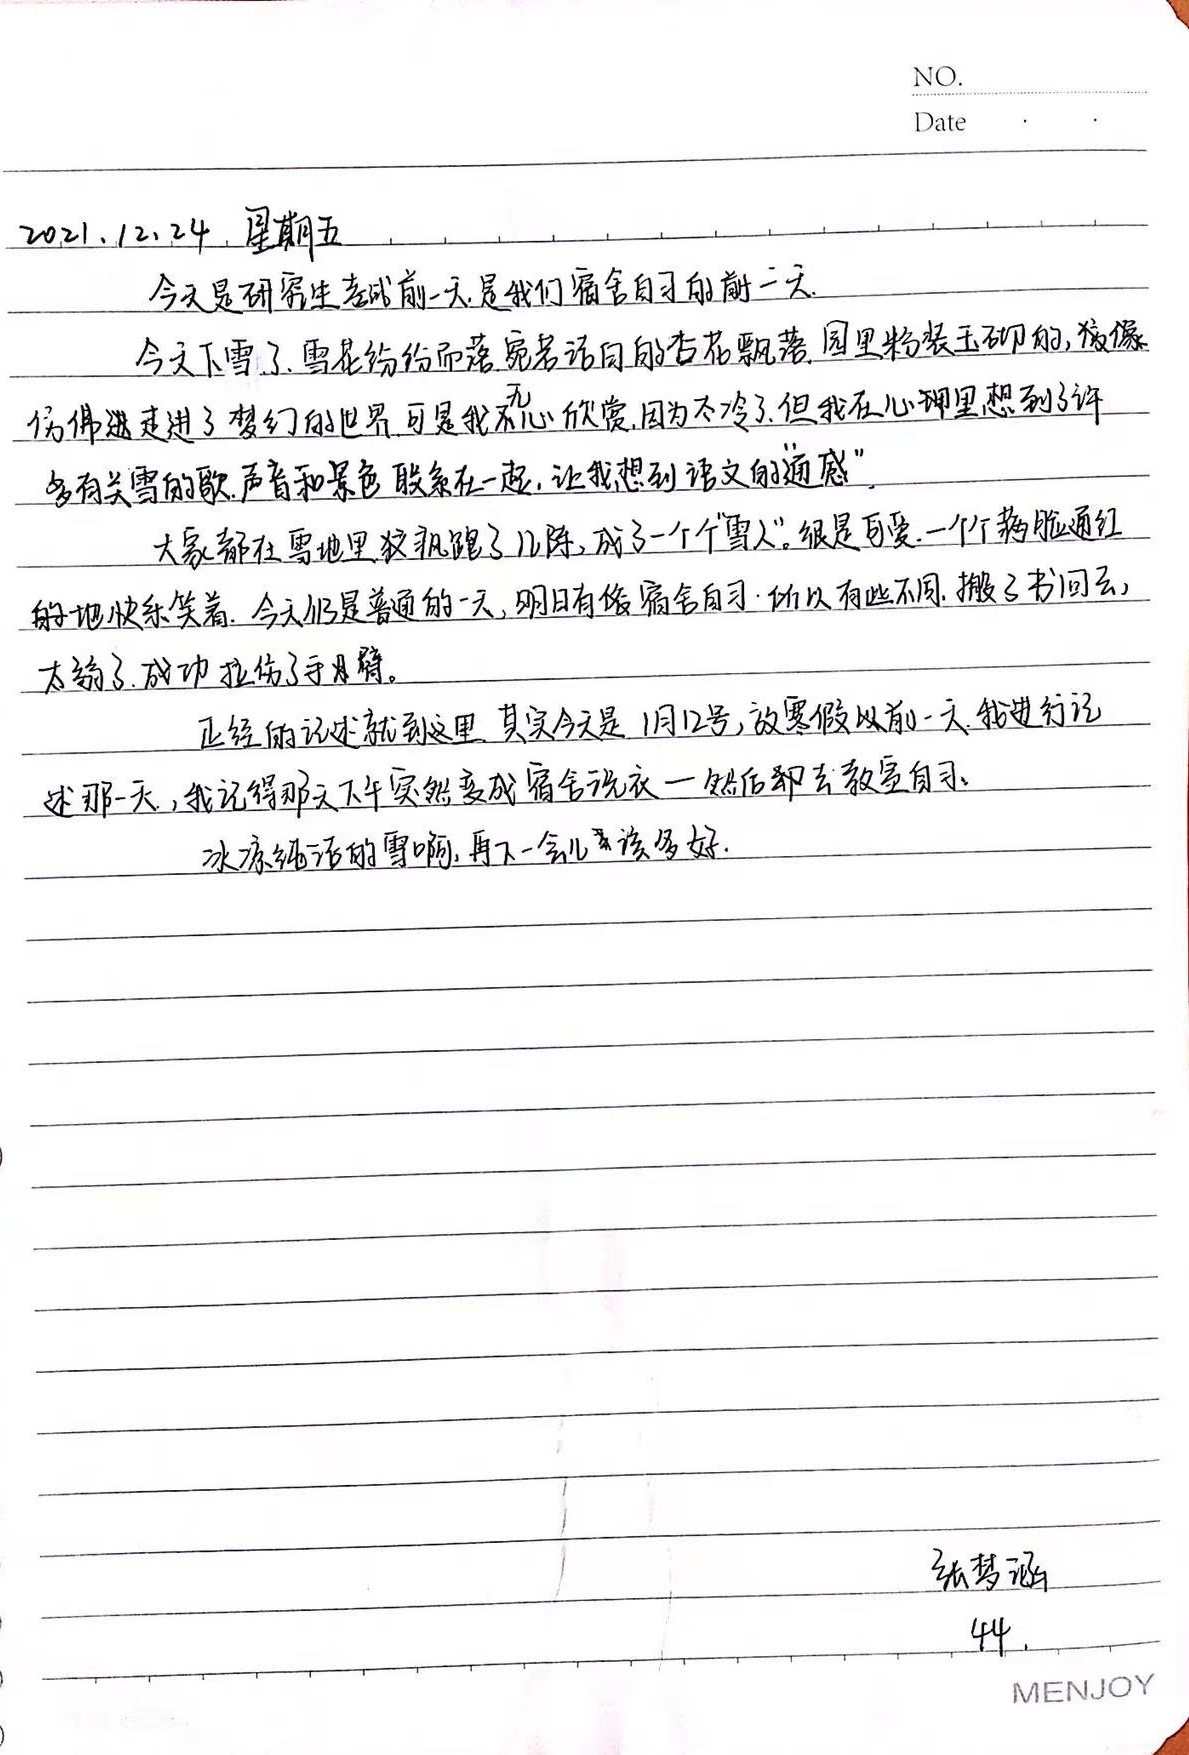 NO.
Date
2021.12.24 星期五
今天是研究生考试前一天.是我们宿舍自习的前一天.
今天下雪了.雪花纷纷而落.宛若洁白的杏花飘落.园里粉装玉砌的,像
仿佛走进了梦幻的世界.可是我无心欣赏,因为太冷了.但我在心理里想到了许
多有关雪的歌.声音和景色联系在一起.让我想到语文的“通感”.
大家都在雪地里疯跑了几阵,成了一个个“雪人”。很是可爱.一个个脸通红
的地快乐笑着.今天仍是普通的一天,明日有宿舍自习.所以有些不同.搬了书回去,
太了.成功拉伤了手臂。
正经的记述就到这里.其实今天是1月12号,放寒假以前一天.我进行记
述那一天,我记得那天下午突然变成宿舍洗衣—然后却去教室自习.
冰凉纯洁的雪啊,再下一会儿该多好.
张梦涵
44.
MENJOY